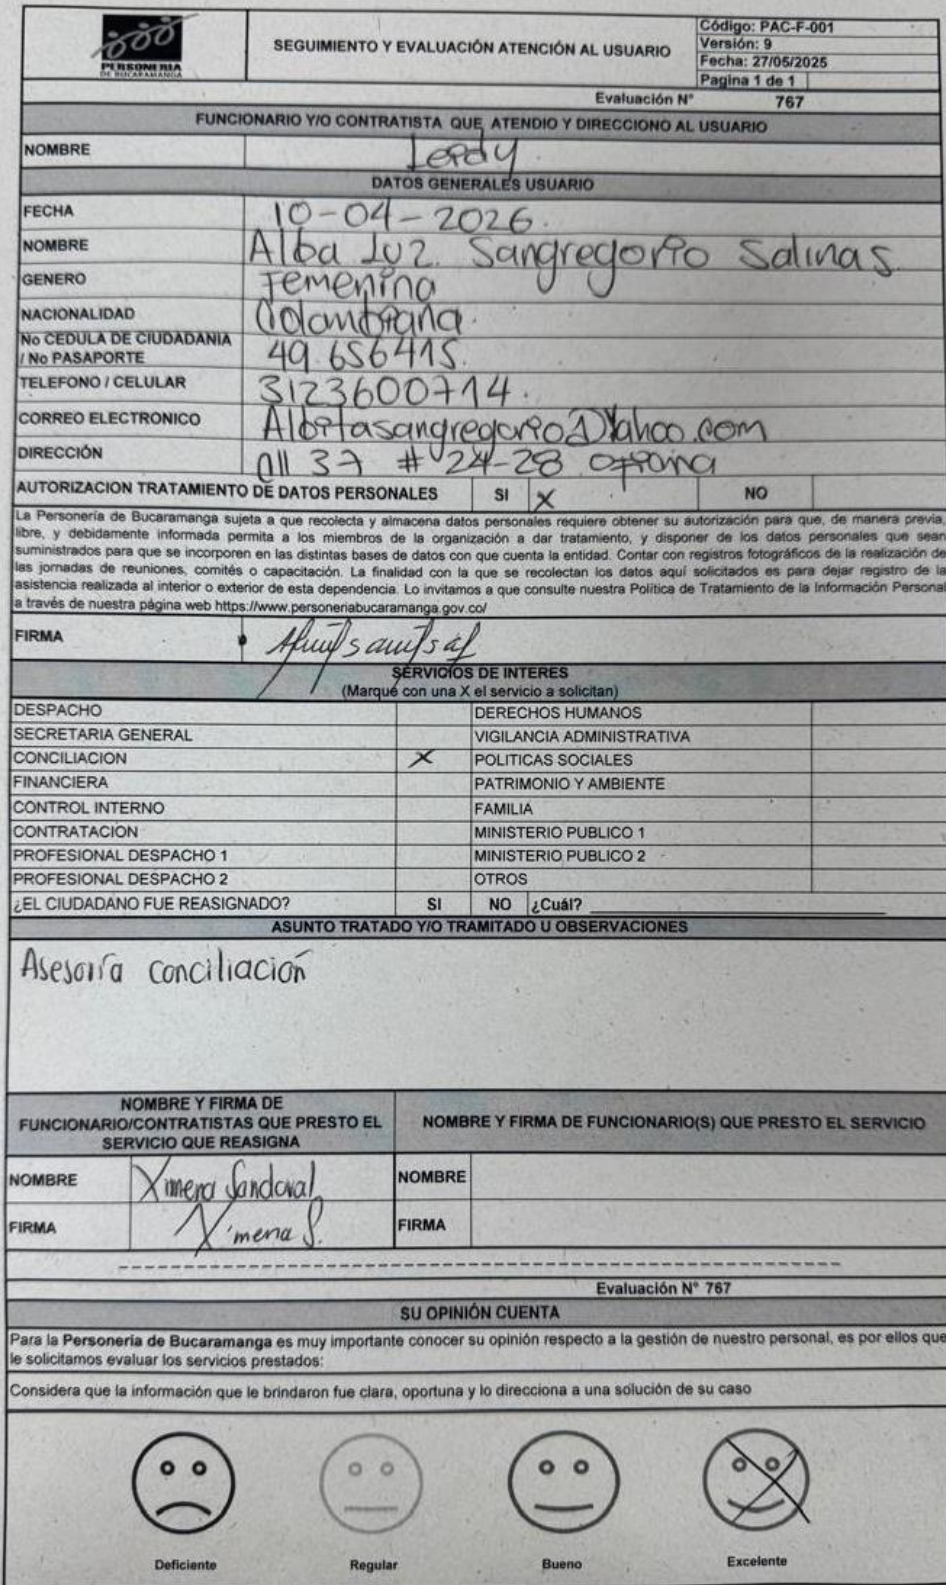 PERSONERIA
DE BUCARAMANGA
SEGUIMIENTO Y EVALUACIÓN ATENCIÓN AL USUARIO
Código: PAC-F-001
Versión: 9
Fecha: 27/05/2025
Pagina 1 de 1
Evaluación N° 767
FUNCIONARIO Y/O CONTRATISTA QUE ATENDIO Y DIRECCIONO AL USUARIO
NOMBRE Leidy
DATOS GENERALES USUARIO
FECHA 10-04-2026.
NOMBRE Alba Luz. Sangregorio Salinas
GENERO Femenina
NACIONALIDAD Colombiana.
No CEDULA DE CIUDADANIA
/ No PASAPORTE 49.656415.
TELEFONO / CELULAR 3123600714.
CORREO ELECTRONICO Albitasangregorio@Yahoo.com
DIRECCIÓN Cll 37 # 24-28 oficina
AUTORIZACION TRATAMIENTO DE DATOS PERSONALES SI X NO
La Personería de Bucaramanga sujeta a que recolecta y almacena datos personales requiere obtener su autorización para que, de manera previa,
libre, y debidamente informada permita a los miembros de la organización a dar tratamiento, y disponer de los datos personales que sean
suministrados para que se incorporen en las distintas bases de datos con que cuenta la entidad. Contar con registros fotográficos de la realización de
las jornadas de reuniones, comités o capacitación. La finalidad con la que se recolectan los datos aquí solicitados es para dejar registro de la
asistencia realizada al interior o exterior de esta dependencia. Lo invitamos a que consulte nuestra Política de Tratamiento de la Información Personal
a través de nuestra página web https://www.personeriabucaramanga.gov.co/
FIRMA
SERVICIOS DE INTERES
(Marque con una X el servicio a solicitan)
DESPACHO DERECHOS HUMANOS
SECRETARIA GENERAL VIGILANCIA ADMINISTRATIVA
CONCILIACION X POLITICAS SOCIALES
FINANCIERA PATRIMONIO Y AMBIENTE
CONTROL INTERNO FAMILIA
CONTRATACION MINISTERIO PUBLICO 1
PROFESIONAL DESPACHO 1 MINISTERIO PUBLICO 2
PROFESIONAL DESPACHO 2 OTROS
¿EL CIUDADANO FUE REASIGNADO? SI NO ¿Cuál?
ASUNTO TRATADO Y/O TRAMITADO U OBSERVACIONES
Asesoría conciliación
NOMBRE Y FIRMA DE
FUNCIONARIO/CONTRATISTAS QUE PRESTO EL
SERVICIO QUE REASIGNA
NOMBRE Y FIRMA DE FUNCIONARIO(S) QUE PRESTO EL SERVICIO
NOMBRE Ximena Sandoval NOMBRE
FIRMA Ximena S. FIRMA
Evaluación N° 767
SU OPINIÓN CUENTA
Para la Personería de Bucaramanga es muy importante conocer su opinión respecto a la gestión de nuestro personal, es por ellos que
le solicitamos evaluar los servicios prestados:
Considera que la información que le brindaron fue clara, oportuna y lo direcciona a una solución de su caso
Deficiente Regular Bueno Excelente